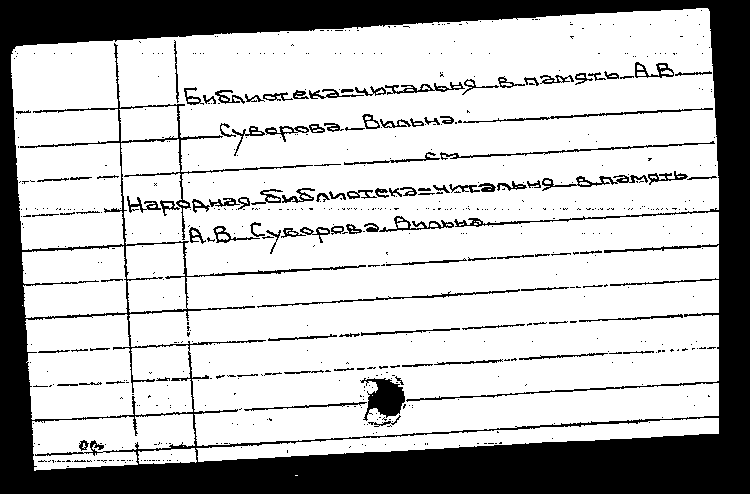 Библиотека-читальня в память А.В.
Суворова. Вильна.
см
Народная библиотека-читальня в память
А.В. Суворова. Вильна